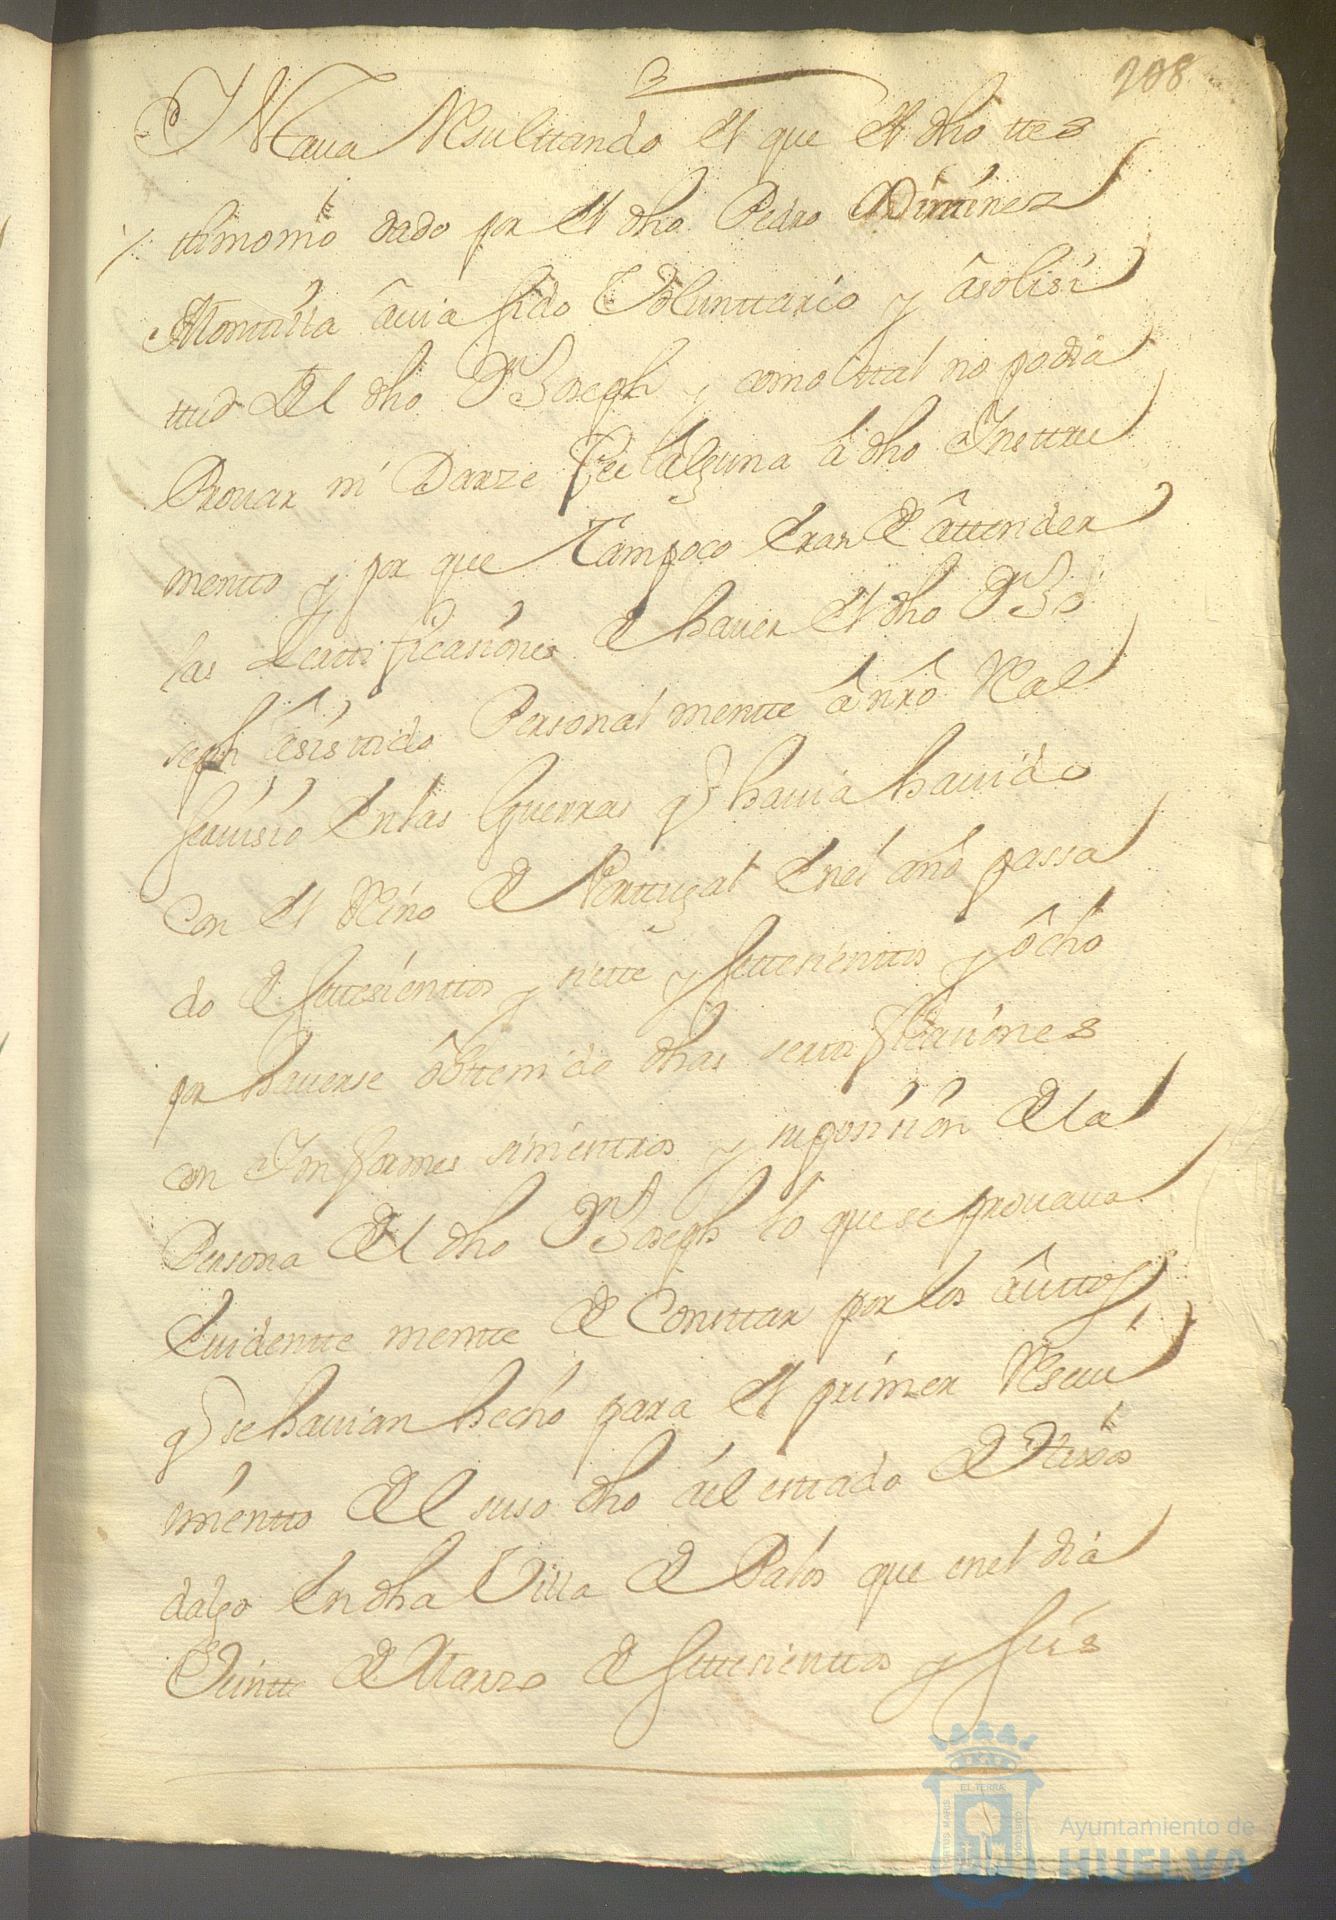 208
Y Estava Resulttando el que el dho ttes
ttimonio dado por el dho Pedro Ximinez
Montilla âuia sido Voluntario y âsolisi
ttud del dho Dn Joseph y como ttal no podia
Prouar ni Darze Fee âlguna â dho Insttru
mentto y por que Tampoco Eran de âttender
las Zerttificasiones de hauer el dho Dn Jo
seph âsisttido Personal mentte ânrô Real
seruisio En las Guerras q hauia hauido
Con el Reino de Porttugal En el año passa
do de settesienttos y siette y settesienttos y ôcho
por hauerse ôbttenido dhas serttificasiones
con Informes siniesttros y suposision de la
Persona del dho Dn Joseph lo que se prouaua
Euidentte mentte de Consttar por los âuttos
q se hauian hecho para el primer Reseui
mientto del suso dho âel esttado de Hixos
dalgo En dha Villa de Palos que en el dia
Veintte de Marzo de settesienttos y seis
EL TERRÆ
PORTUS MARIS
CUSTODIA
Ayuntamiento de
HUELVA